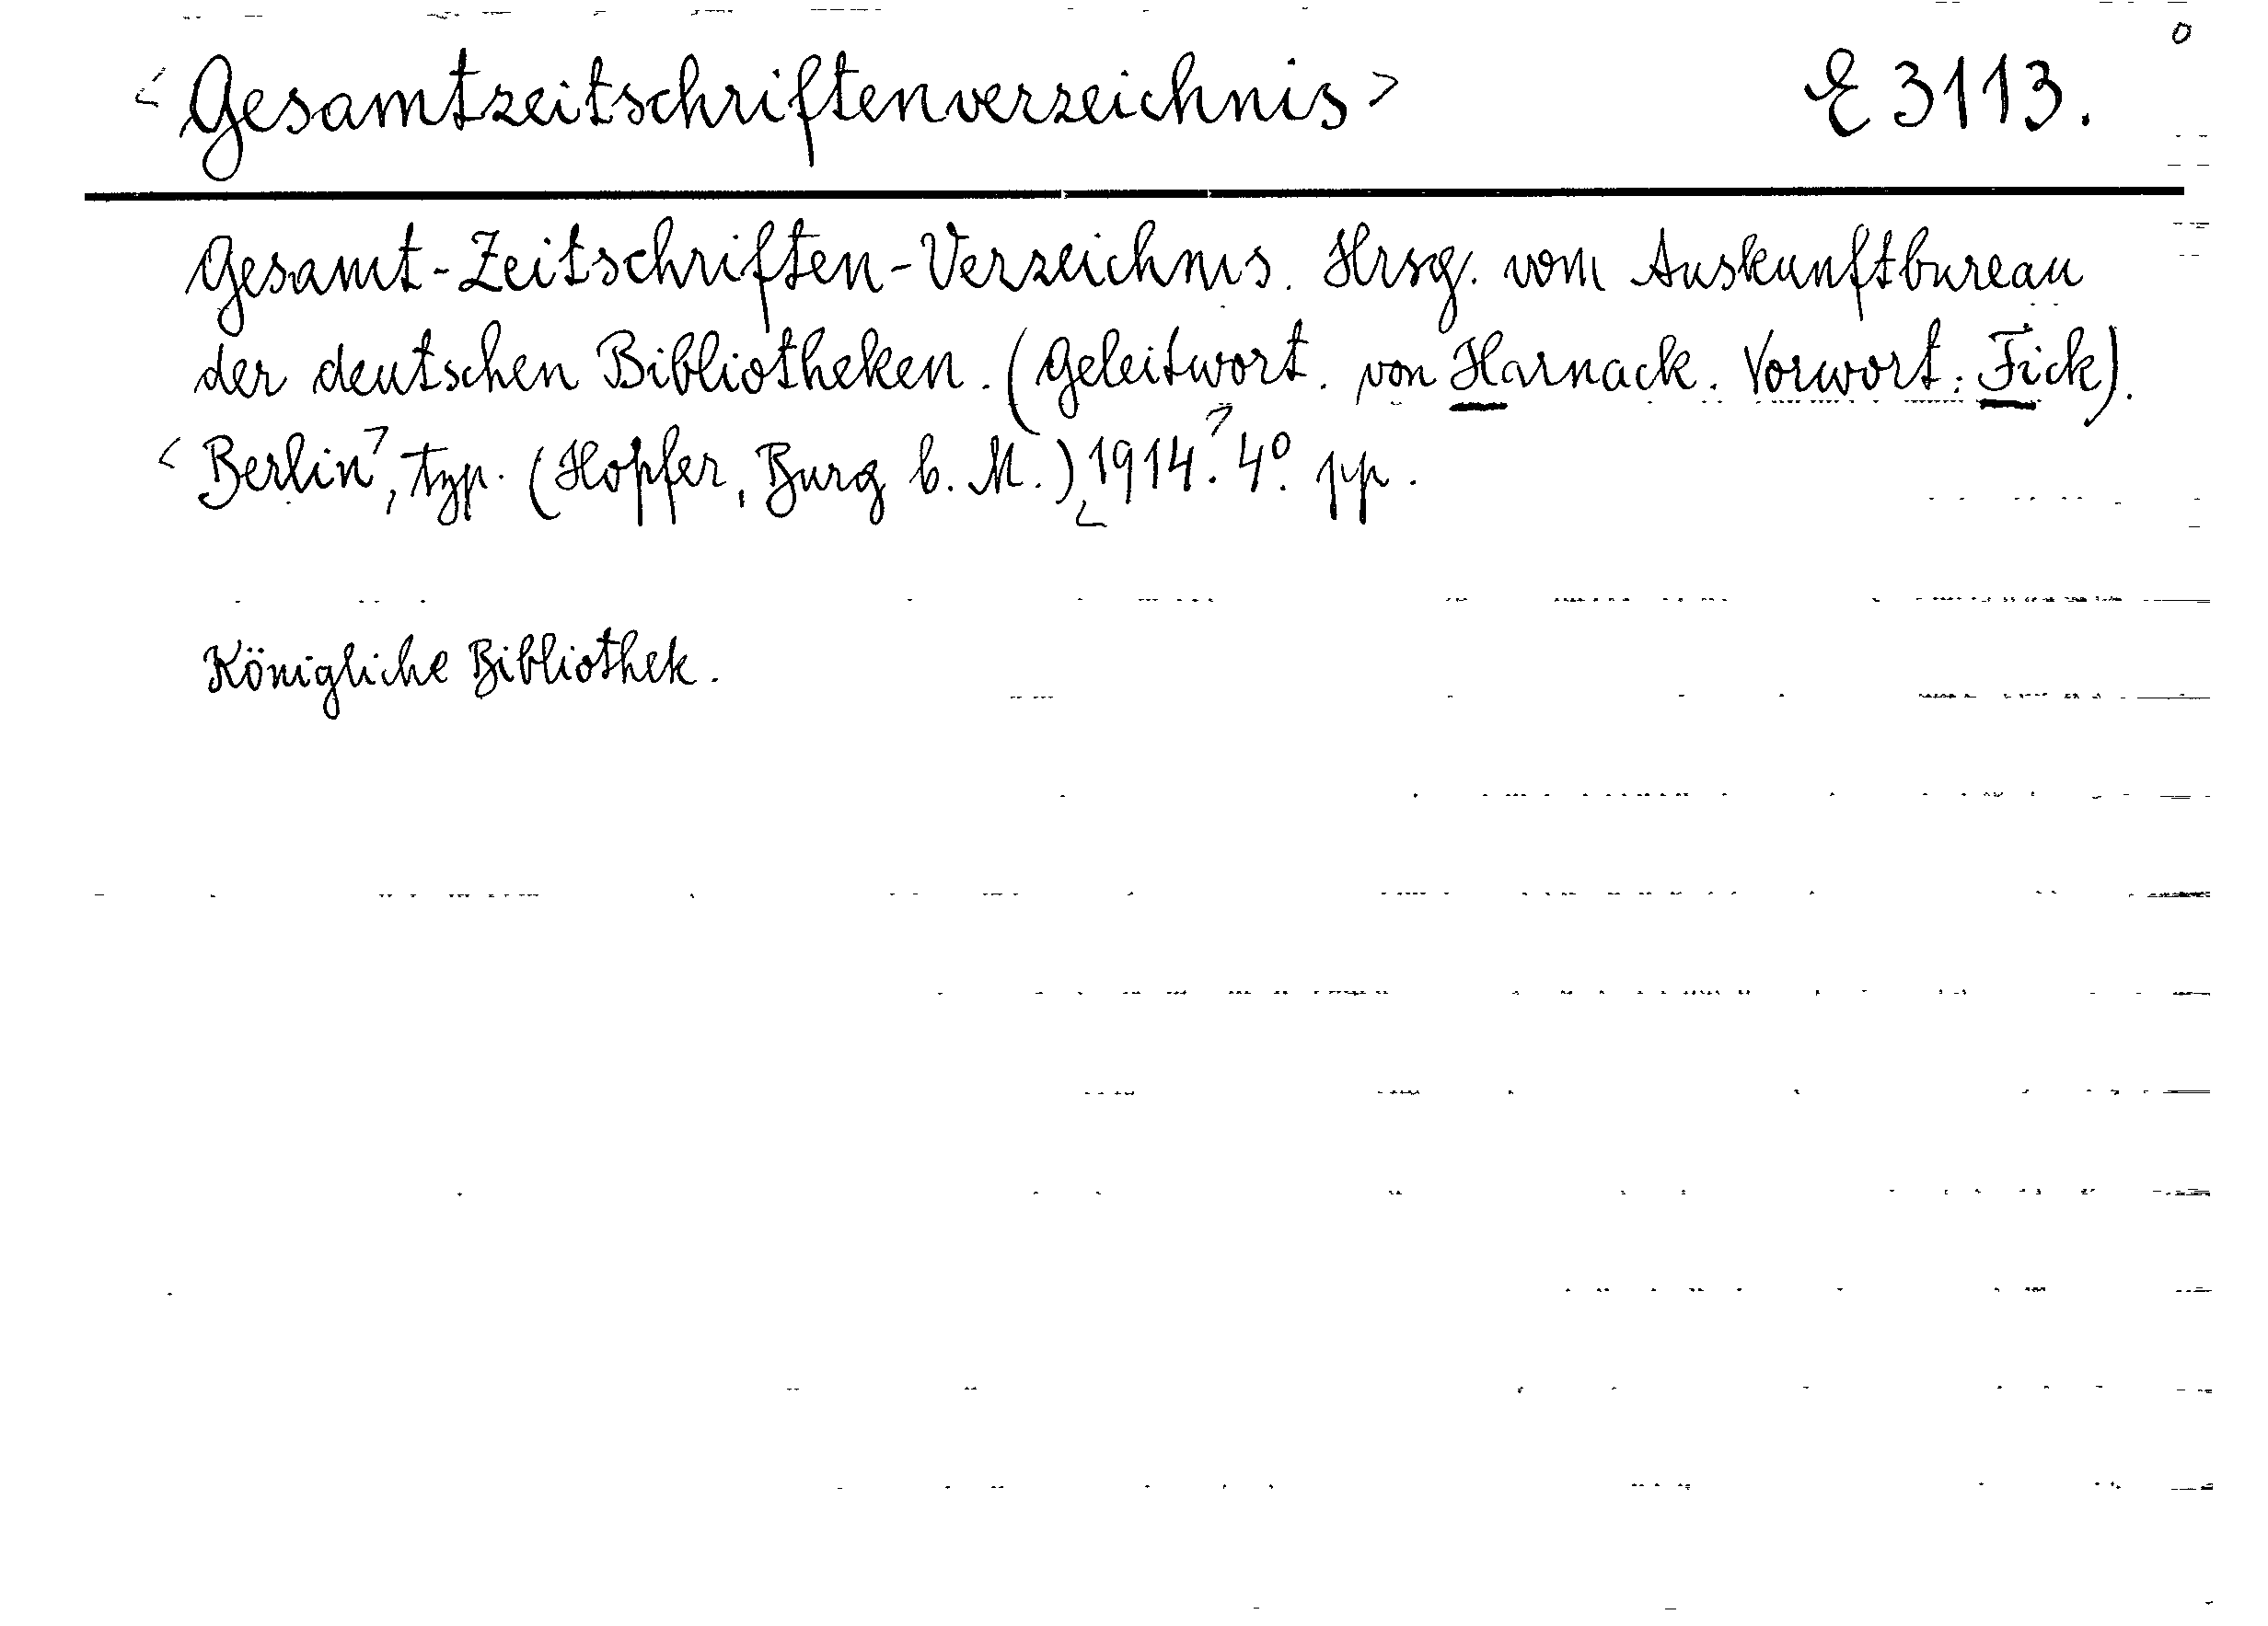 <Gesamtzeitschriftenverzeichnis> E 3113.
Gesamt-Zeitschriften-Verzeichnis. Hrsg. vom Auskunftbureau
der deutschen Bibliotheken. (Geleitwort. von Harnack. Vorwort: Fick).
<Berlin>, typ. (Hopfer, Burg b. M.) <1914.> 4° pp.
Königliche Bibliothek.